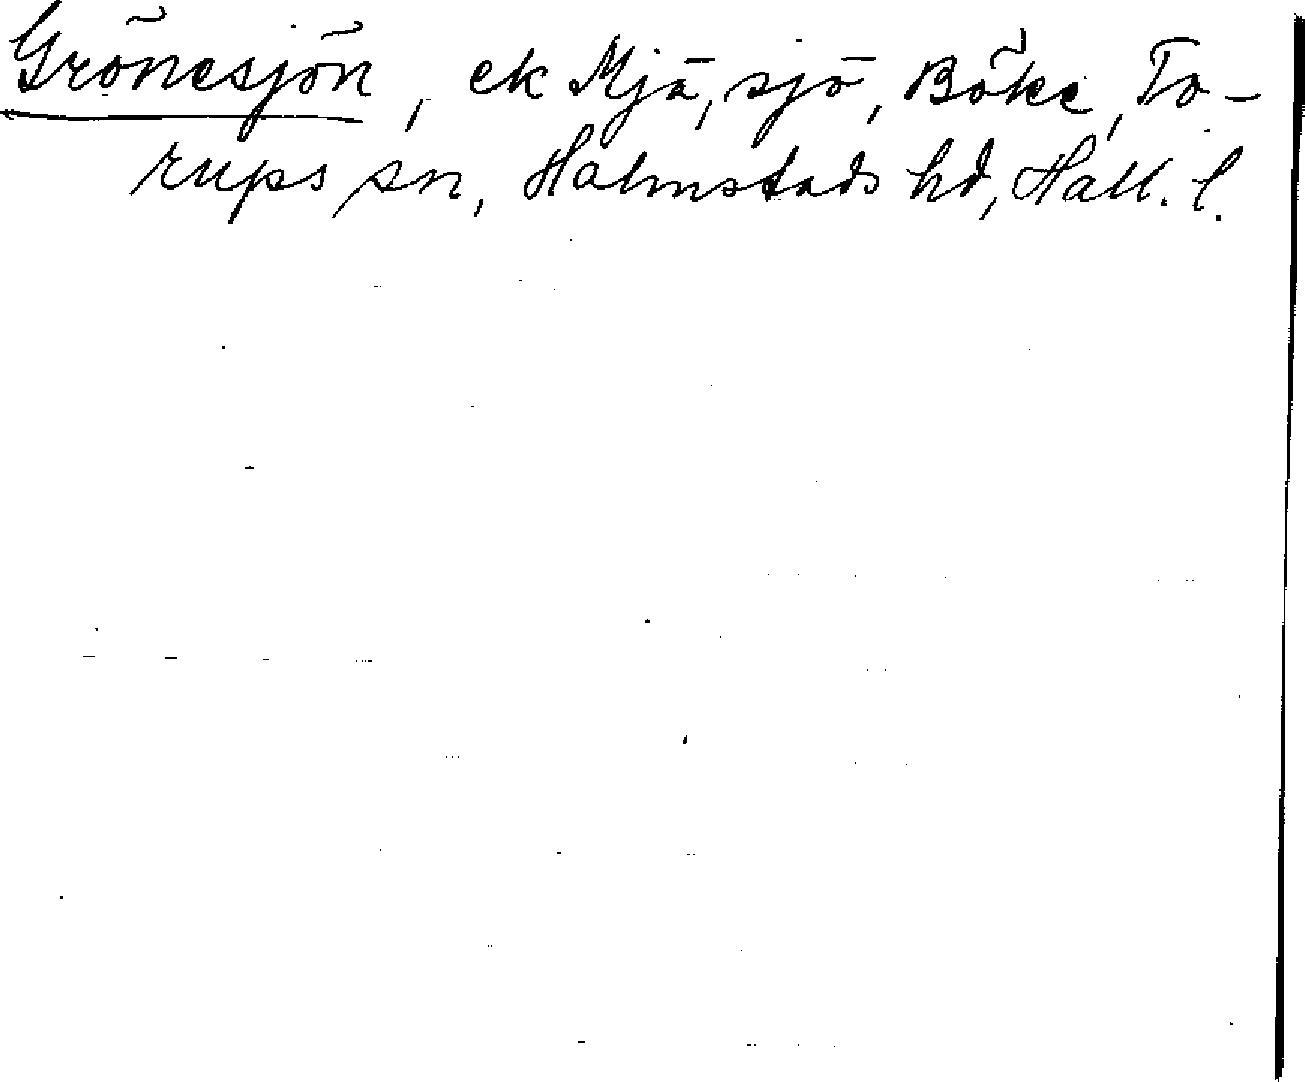 Grönesjön, ek Mjä, sjö, Böke, To-
rups sn, Halmstads hd, Hall. l.